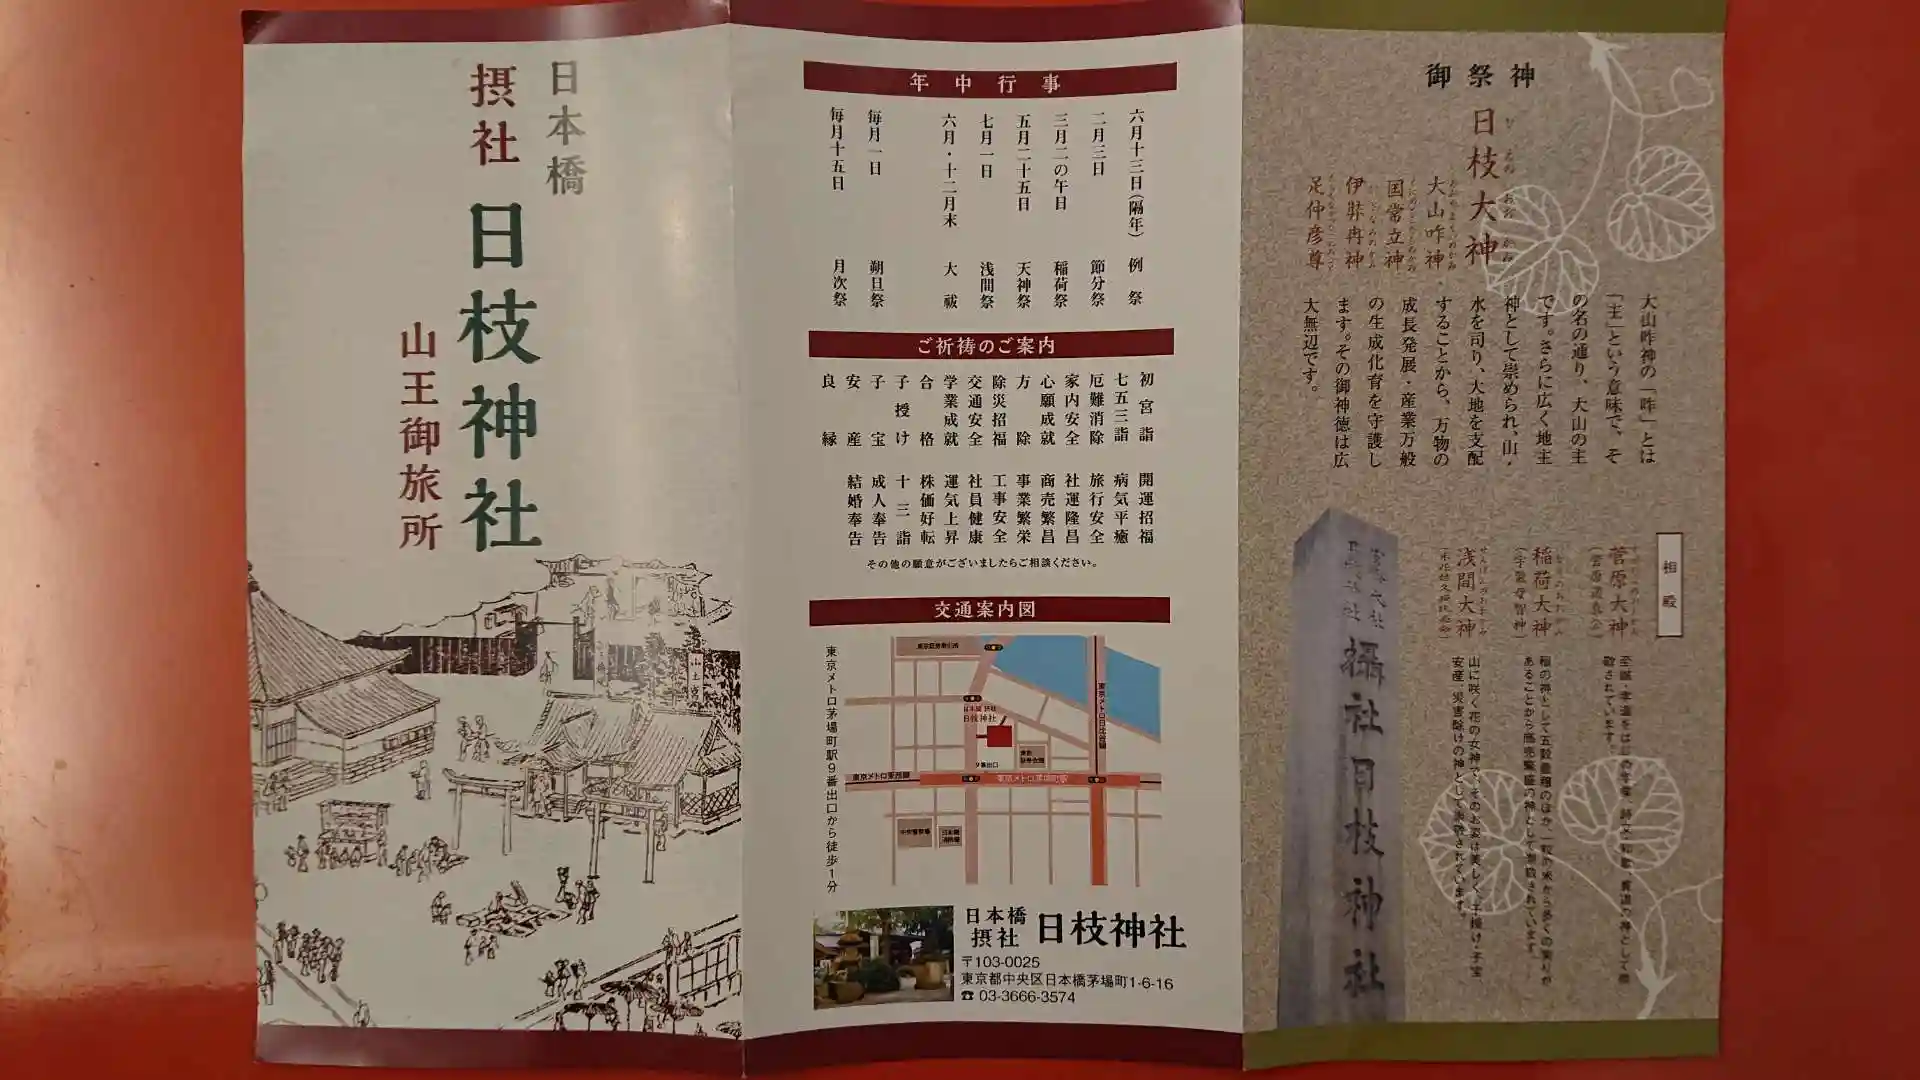 日本橋
摂社 日枝神社
山王御旅所
年中行事
六月十三日(隔年) 例祭
二月三日 節分祭
三月二の午日 稲荷祭
五月二十五日 天神祭
七月一日 浅間祭
六月・十二月末 大祓
毎月一日 朔旦祭
毎月十五日 月次祭
ご祈祷のご案内
初宮詣
七五三詣
厄難消除
家内安全
心願成就
方除
除災招福
交通安全
学業成就
合格
子授け
子宝
安産
良縁
開運招福
病気平癒
旅行安全
社運隆昌
商売繁昌
事業繁栄
工事安全
社員健康
運気上昇
株価好転
十三詣
成人奉告
結婚奉告
その他の願意がございましたらご相談ください。
交通案内図
東京メトロ茅場町駅9番出口から徒歩1分
東京証券取引所
東京メトロ日比谷線
日本橋 摂社
日枝神社
9番出口
東京メトロ東西線
東京メトロ茅場町駅
中央警察署
日本橋
消防署
日本橋
摂社 日枝神社
〒103-0025
東京都中央区日本橋茅場町1-6-16
☎ 03-3666-3574
御祭神
日枝大神
大山咋神
国常立神
伊弉冉神
足仲彦尊
大山咋神の「咋」とは
「主」という意味で、そ
の名の通り、大山の主
です。さらに広く地主
神として崇められ、山・
水を司り、大地を支配
することから、万物の
成長発展・産業万般
の生成化育を守護し
ます。その御神徳は広
大無辺です。
相殿
菅原大神
(菅原道真公)
敬されています。
稲荷大神
稲の神として五穀豊穣のほか、一粒の米から多くの実りが
あることから商売繁盛の神として崇敬されています。
浅間大神
山に咲く花の女神で、そのお姿は美しく、子授け・子宝
安産、災害除けの神として崇敬されています。
攝社日枝神社